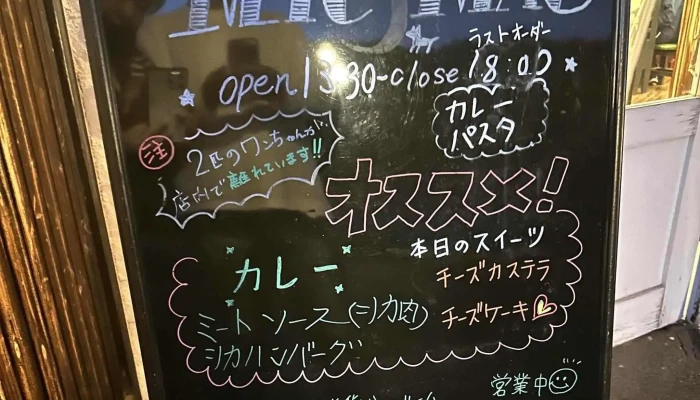 ラストオーダー
open 13:30-close 18:00
カレー
パスタ
注
2匹のワンちゃんが
店内で離れています!!
オススメ!
本日のスイーツ
カレー
チーズカステラ
ミートソース(シカ肉)
チーズケーキ
シカハンバーグ
営業中